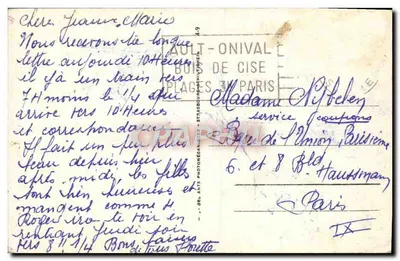 Chère Jeanne Marie
Nous recevons ta longue
lettre aujourdui 10 Heures
il y a un train vers
7H moins le 1/4 qui
arrive vers 10 Heures
et correspondance
Il fait un peu plus
beau depuis hier
après midi les filles
sont bien heureuses et
mangent comme 4
Roger ira te voir en
rentrant Jeudi soir
vers 8H 1/4 Bons baisers
de tous
AULT-ONIVAL
BOIS DE CISE
PLAGES 3H PARIS
Madame
service coupons
Bque de l'Union Parisienne
6 et 8 Bld
Haussmann
Paris
IX